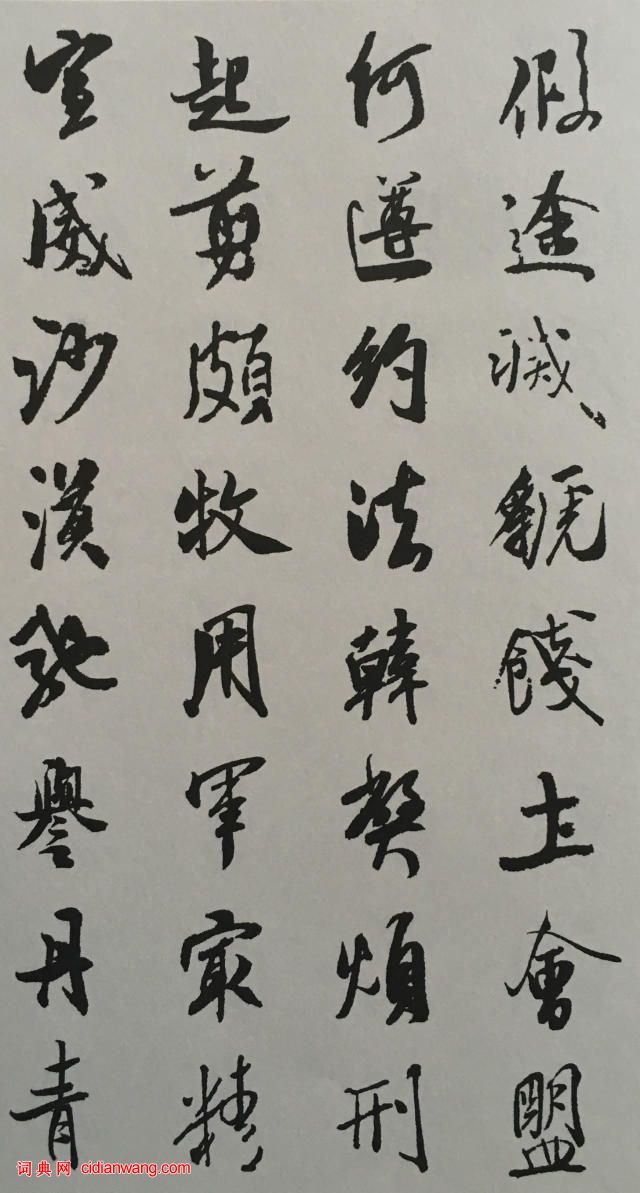 假途滅虢餞土會盟
何遵約法韓弊煩刑
起剪頗牧用軍最精
宣威沙漠馳譽丹青
词典网 cidianwang.com